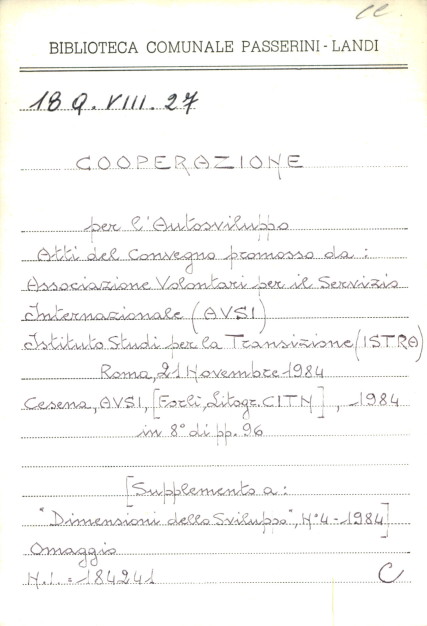 cc.
BIBLIOTECA COMUNALE PASSERINI-LANDI
18 Q. VIII. 27
COOPERAZIONE
per l'Autosviluppo
Atti del Convegno promosso da:
Associazione Volontari per il Servizio
Internazionale (AVSI)
Istituto Studi per la Transizione (ISTRA)
Roma, 21 Novembre 1984
Cesena, AVSI, [Forlì, Litogr. CITN], 1984
in 8° di pp. 96
[Supplemento a:
"Dimensioni dello Sviluppo", N° 4-1984]
Omaggio
N.I. = 184241
C